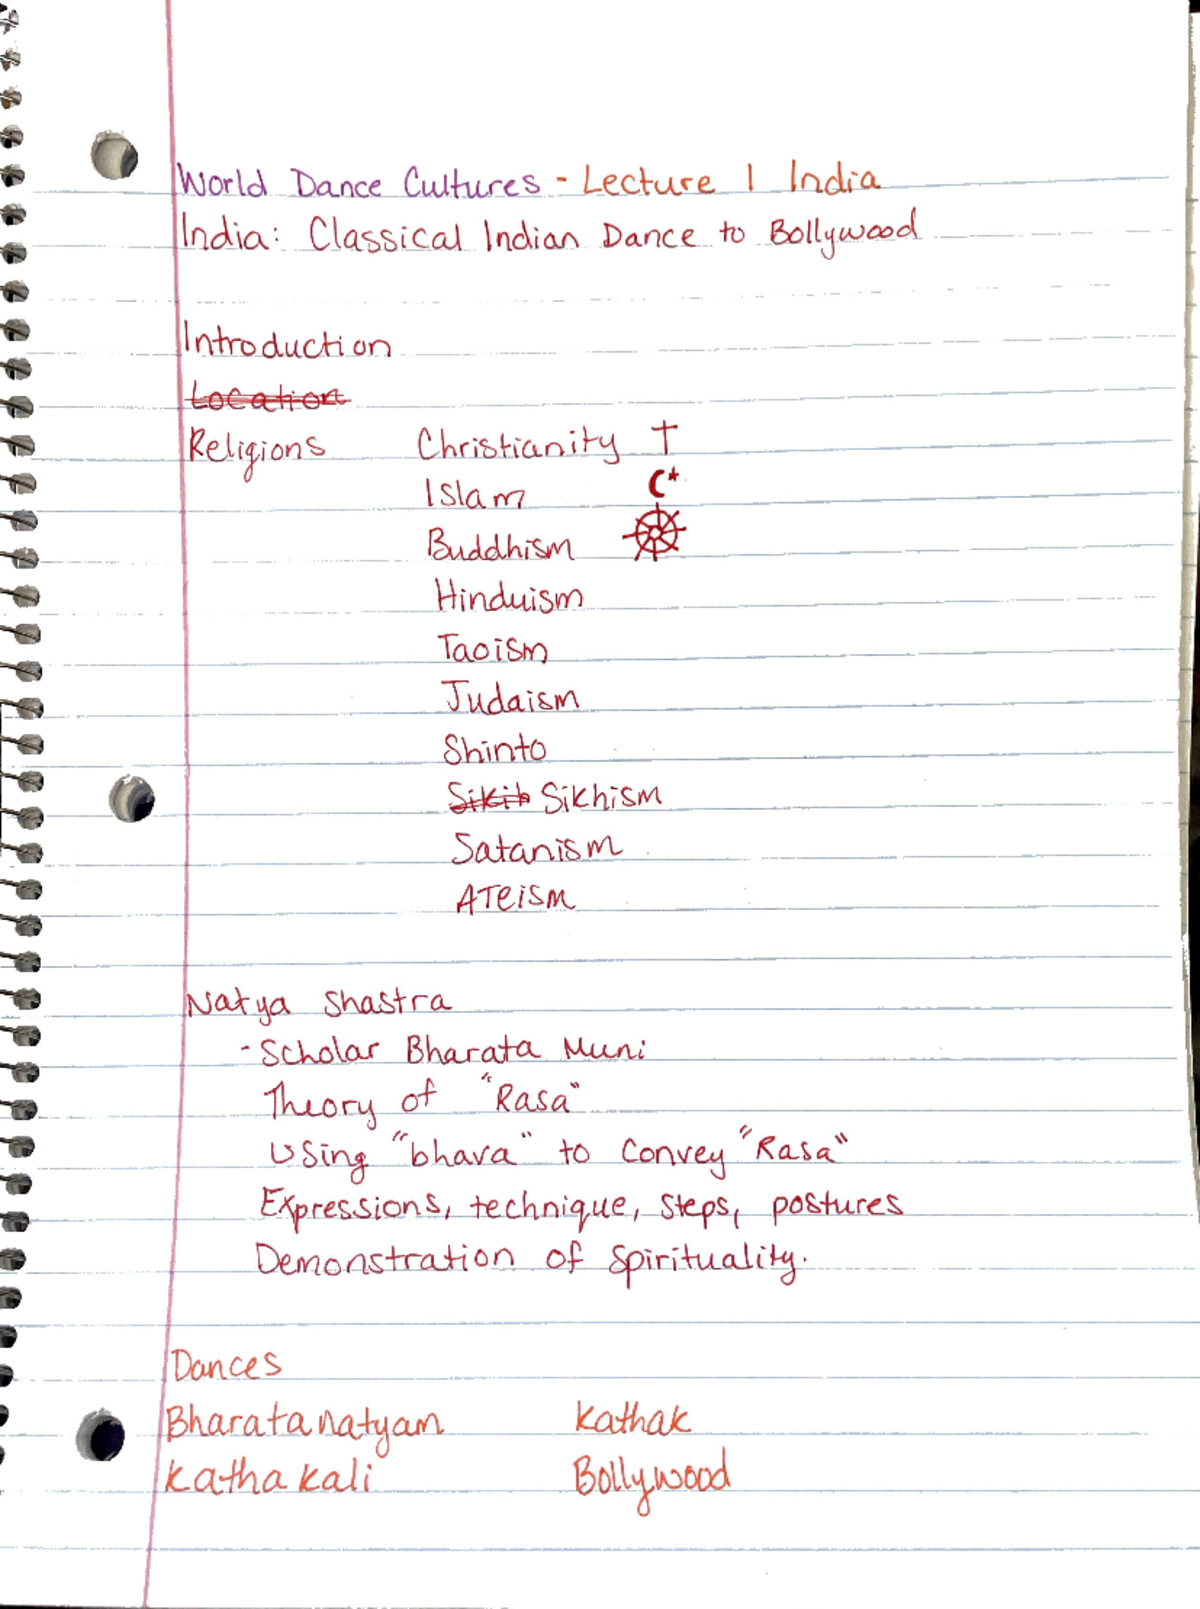 World Dance Cultures - Lecture 1 India
India: Classical Indian Dance to Bollywood
Introduction
Location
Religions Christianity
Islam
Buddhism
Hinduism
Taoism
Judaism
Shinto
Sikih Sikhism
Satanism
ATeism
Natya Shastra
- Scholar Bharata Muni
Theory of "Rasa"
Using "bhava" to convey "Rasa"
Expressions, technique, steps, postures
Demonstration of Spirituality.
Dances
Bharatanatyam Kathak
Kathakali Bollywood